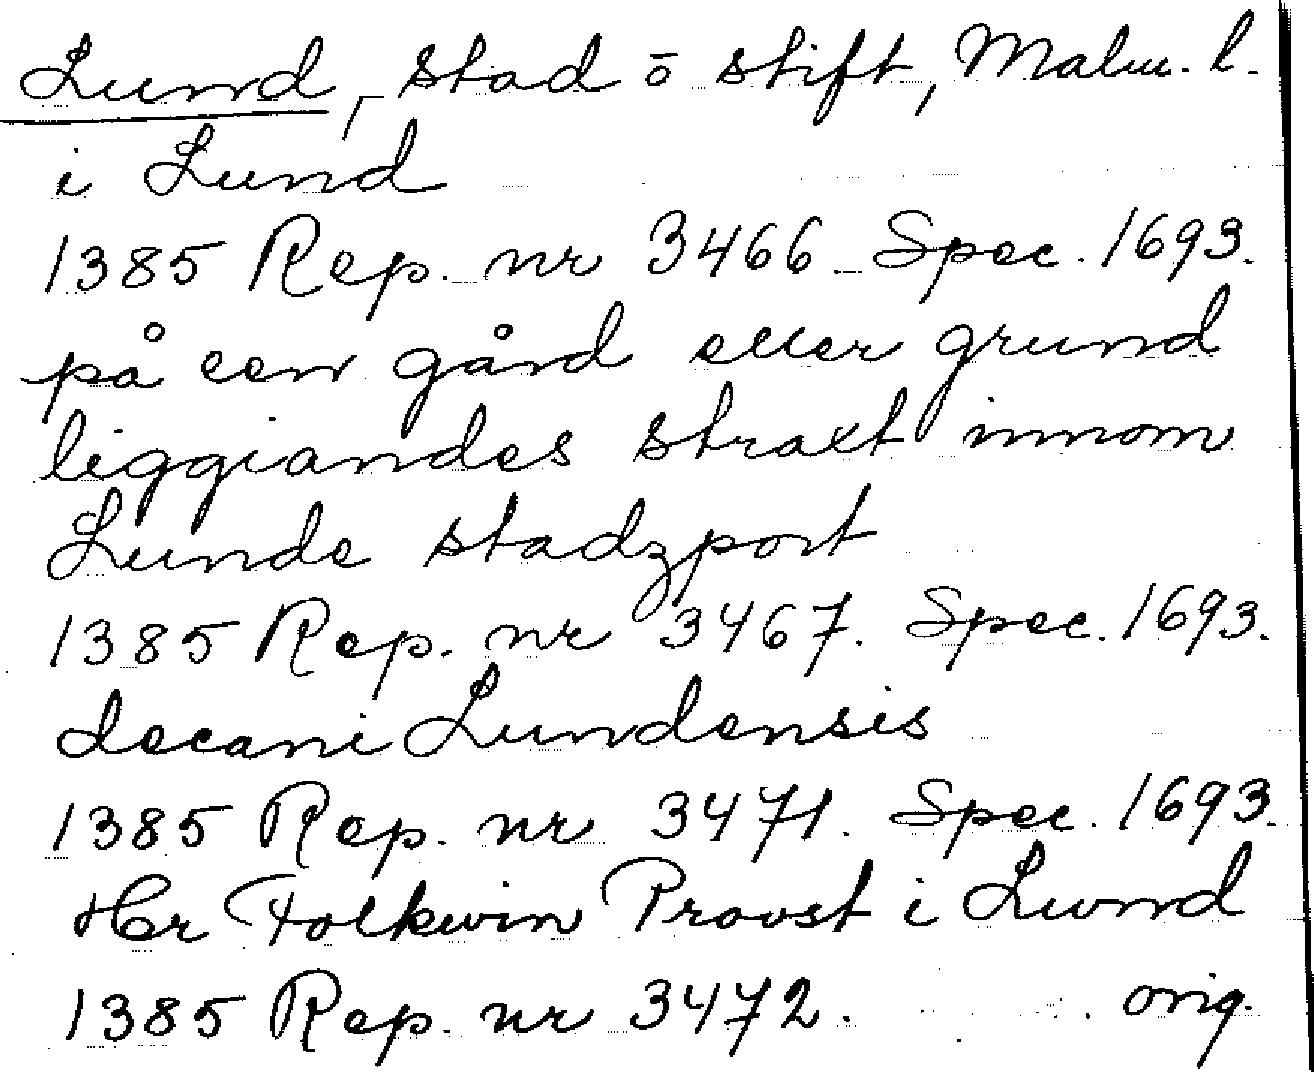 Lund, stad ō stift, Malm. l.
i Lund
1385 Rep. nr 3466 Spec. 1693.
på een gård eller grund
liggiandes straxt innom
Lunde stadzport
1385 Rep. nr 3467. Spec. 1693.
decani Lundensis
1385 Rep. nr 3471. Spec. 1693.
Her Folkwin Provst i Lund
1385 Rep. nr 3472. orig.